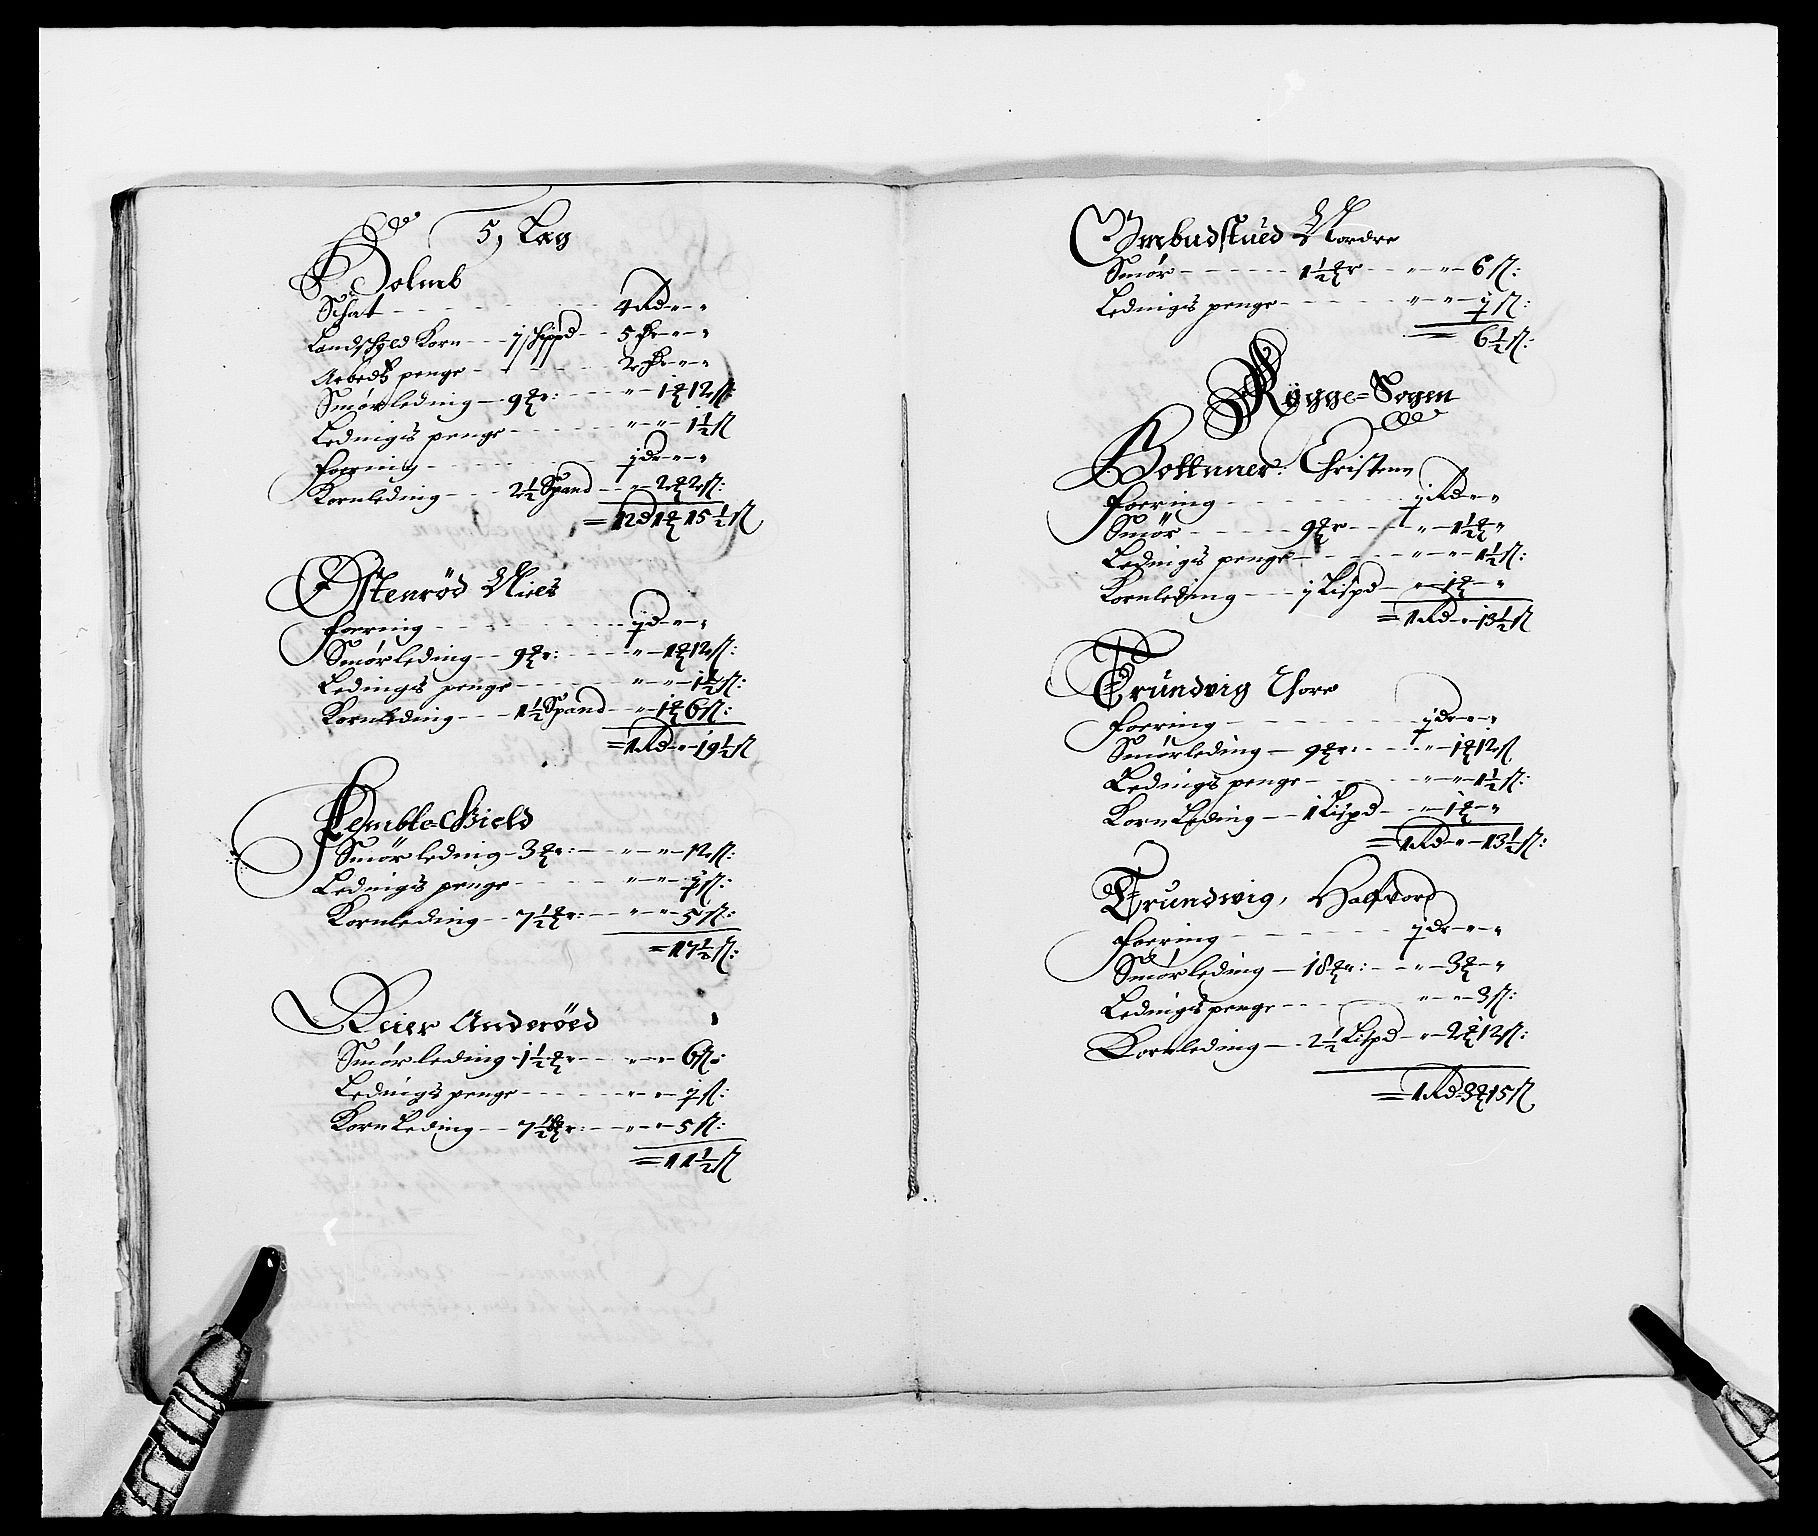 5, Læg
Holmb
Schat - - - 4 Rd - " - "
Landschyld Korn - - j schippd - - 5 Rdr - " - "
Arbeds penge - - - 2 Rdr - " - "
Smørleding - 9 ℔r: - - " - 1 ℔ 12 ß:
Ledings penge - - - " - " - 1½ ß
Foering - - - j dr - " - "
Kornleding - - 2½ Spand - - " - 2 ℔ 2 ß:
= 12 d 1 ℔ 15½ ß
Østenrød Niels
Foering - - - j d - " - "
Smørleding - - 9 ℔r: - - " - 1 ℔ 12 ß:
Ledings penge - - - " - " - 1½ ß:
Kornleding - - 1½ Spand - - " - 1 ℔ 6 ß:
= 1 Rd - " - 19½ ß
Smørleding - 3 ℔r: - - " - " - 12 ß:
Ledings penge - - - " - " - ½ ß:
Kornleding - - 7½ ℔r: - - " - " - 5 ß:
= 17½ ß:
Reier Anderøed
Smørleding - 1½ ℔r - - " - " - 6 ß:
Ledings penge - - - " - " - ½ ß:
Korn Leding - - 7½ ℔r: - - " - " - 5 ß:
= 11½ ß
Ombudstued Nordre
Smør - - - 1½ ℔r - - " - " - 6 ß:
Ledings penge - - - " - " - ½ ß:
= 6½ ß:
Rygge=Sogen
Bottner: Christen
Foering - - - j Rd - " - "
Smør - - - 9 ℔r - - " - 1½ ℔ - "
Ledings penge - - - " - " - 1½ ß:
Kornleding - - j Lispd - " - 1 ℔ - "
= 1 Rd - " - 13½ ß
Grundvig Thore
Foering - - - j dr - " - "
Smørleding - 9 ℔r: - - " - 1 ℔ 12 ß
Ledings penge - - - " - " - 1½ ß:
Korn Leding - - 1 Lispd - - " - 1 ℔ - "
= 1 Rd - " - 13½ ß:
Grundwig, Halfvord
Foering - - - j dr - " - "
Smørleding - 18 ℔r: - - " - 3 ℔ - "
Ledings penge - - - " - " - 3 ß:
Kornleding - 2½ Lispd - " - 2 ℔ 12 ß:
= 1 Rd 3 ℔ 15 ß